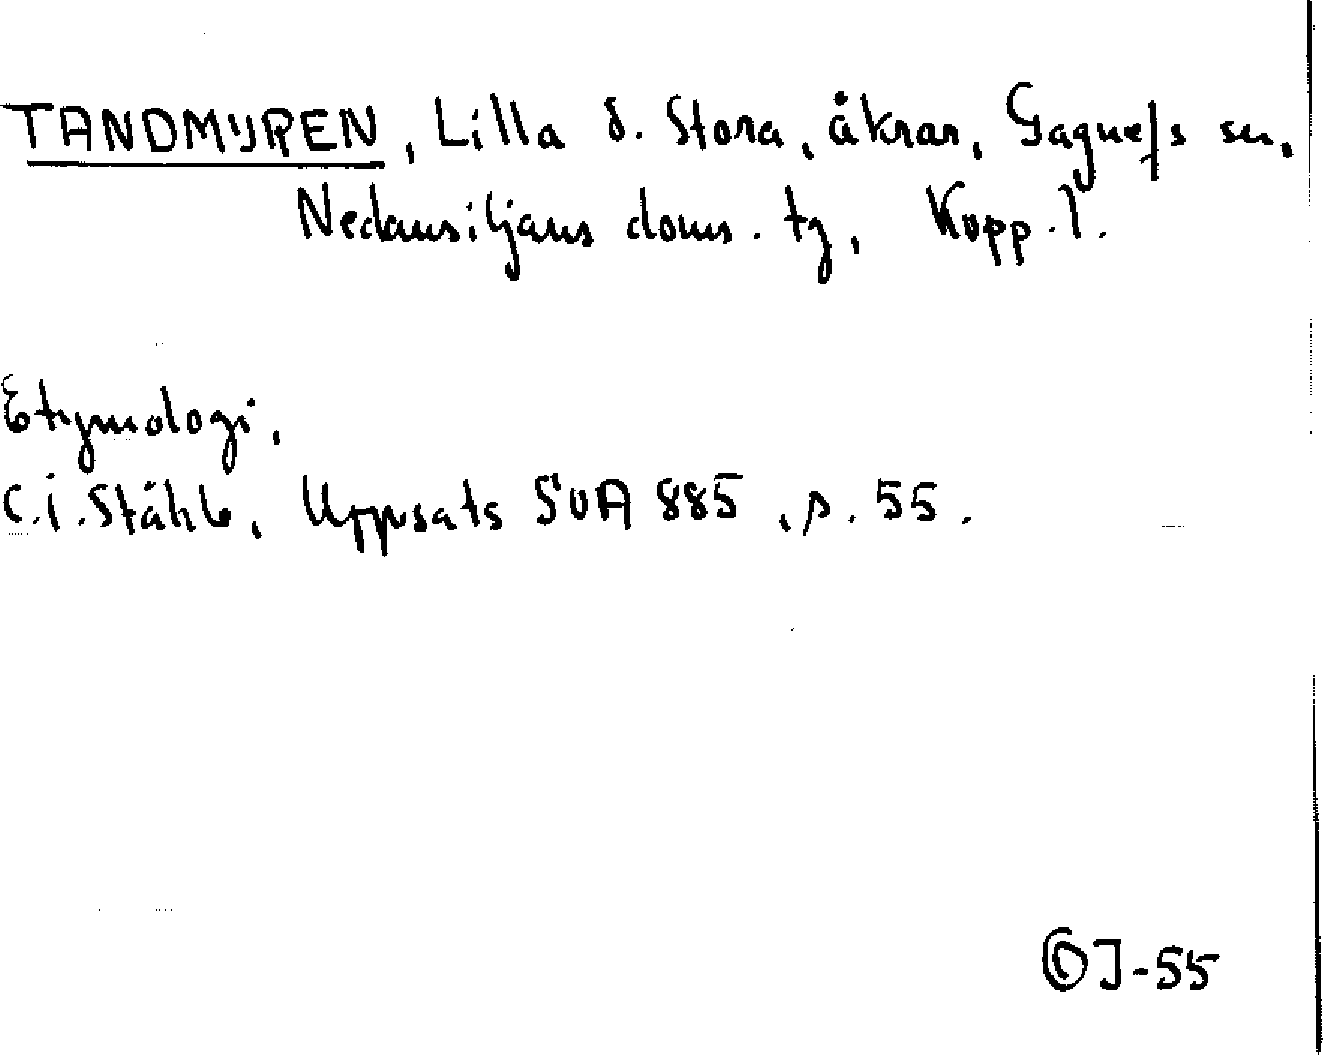 TANDMYREN, Lilla o. Stora, åkrar, Gagnefs sn,
Nedansiljans doms. tg, Kopp. l.
Etymologi.
C.I. Ståhle, Uppsats SOA 885, p. 55.
OJ-55